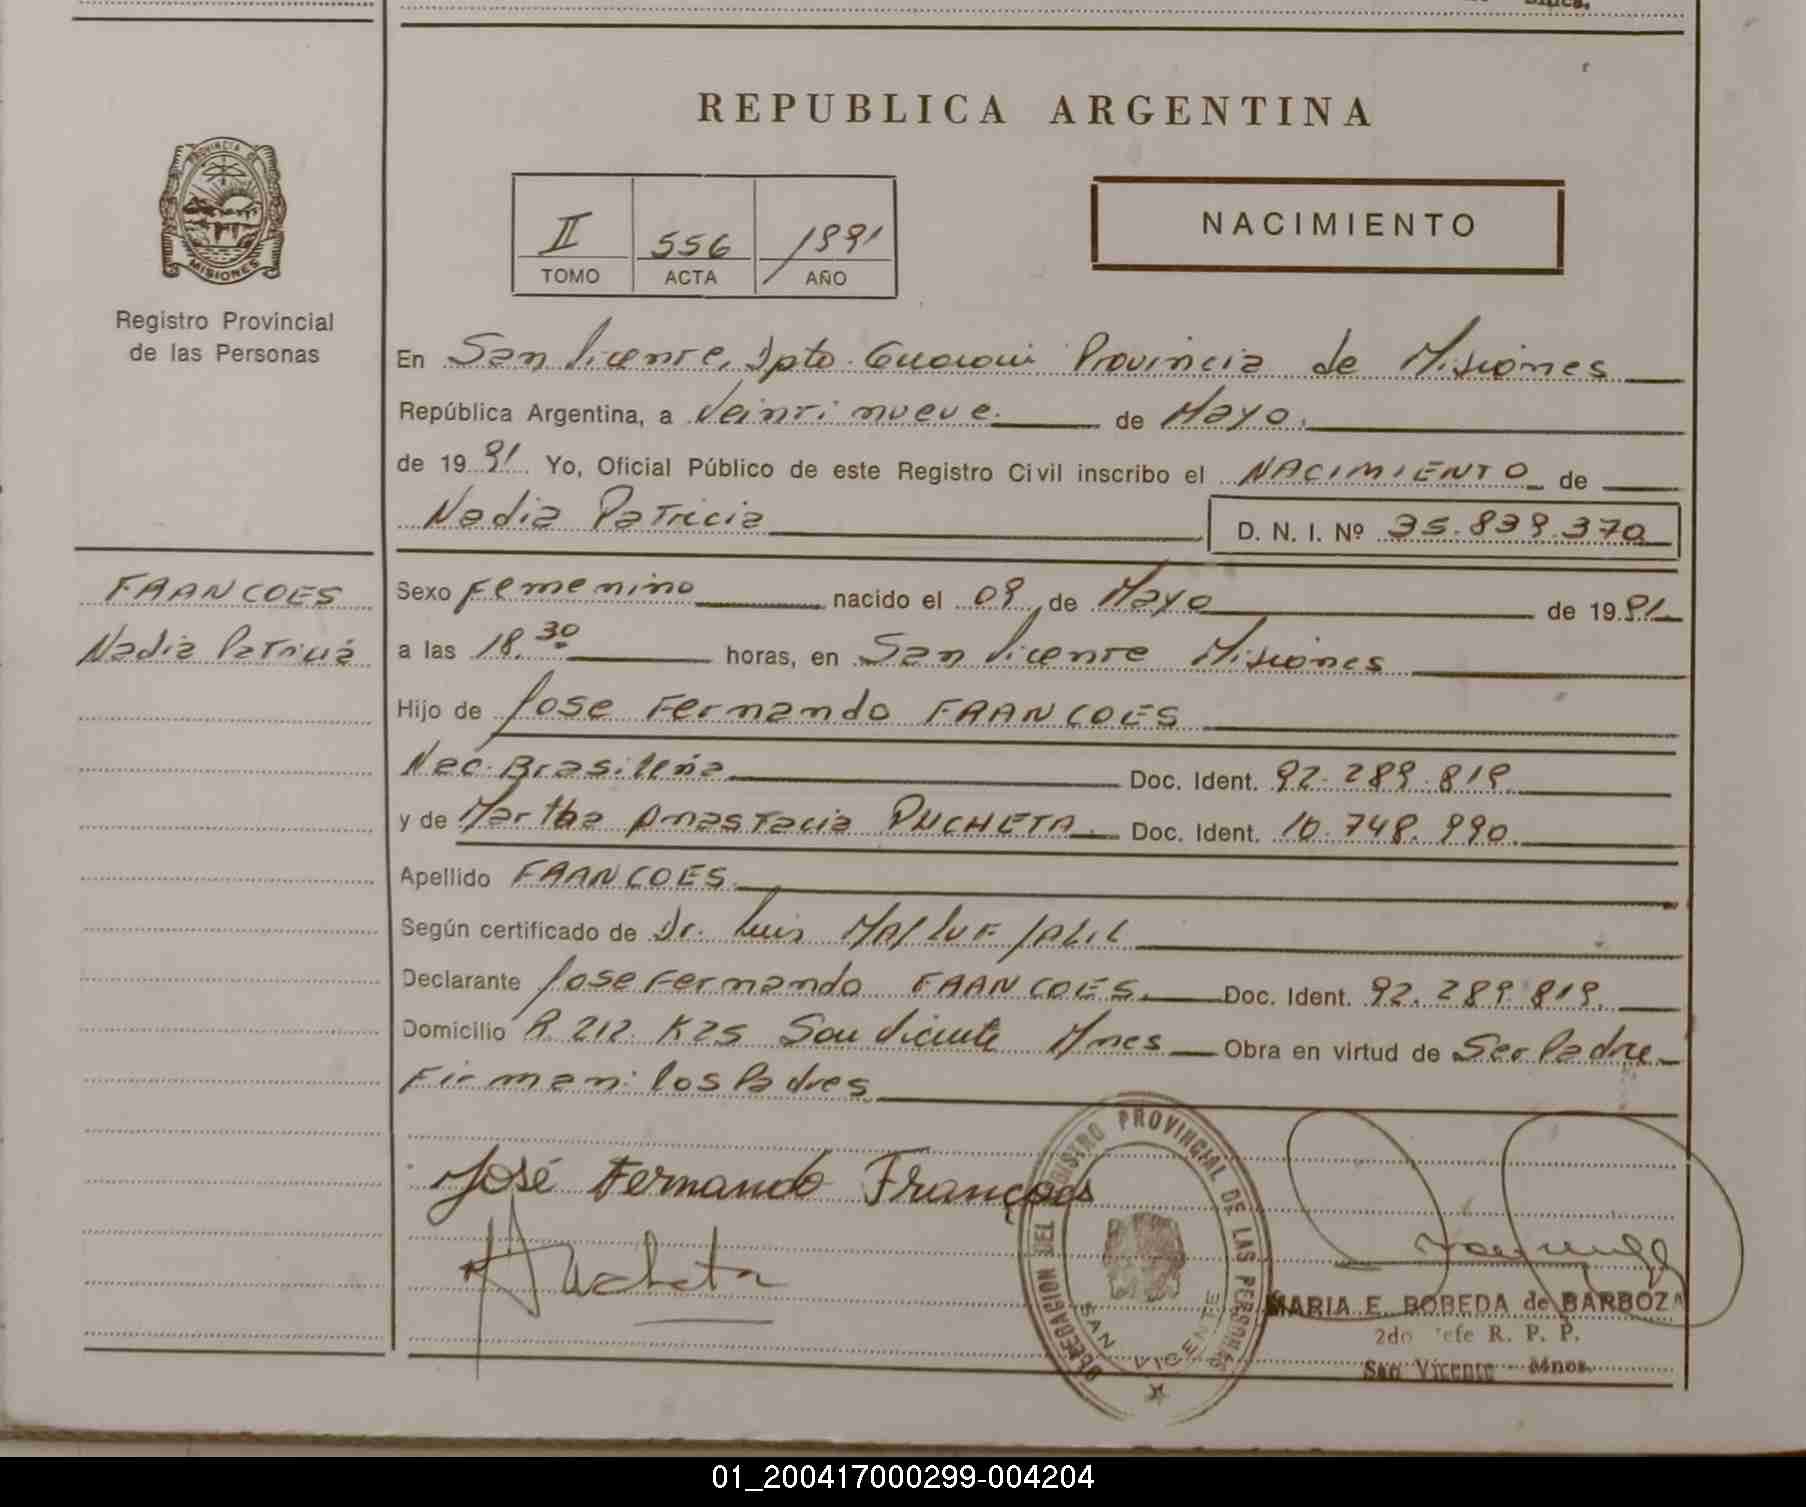 REPUBLICA ARGENTINA
PROVINCIA DE
MISIONES
Registro Provincial
de las Personas
II 556 1991
TOMO ACTA AÑO
NACIMIENTO
En San Vicente, Dpto. Guarani Provincia de Misiones
República Argentina, a Veintinueve de Mayo.
de 19 91 Yo, Oficial Público de este Registro Civil inscribo el NACIMIENTO de
Nadia Patricia D. N. I. Nº 35.839.370
FRANCOES
Nadia Patricia
Sexo Femenino nacido el 09 de Mayo de 19 91
a las 18.30 horas, en San Vicente Misiones
Hijo de Jose Fernando FRANCOES
Nac. Brasileña Doc. Ident. 92.289.819.
y de Martha Anastacia PUCHETA. Doc. Ident. 10.748.990.
Apellido FRANCOES.
Según certificado de Dr. Luis MALUF JALIL
Declarante Jose Fernando FRANCOES. Doc. Ident. 92.289.819.
Domicilio R. 212. K25 San Vicente Mnes Obra en virtud de Ser Padre
Firman: los Padres
José Fernando Françoes
Pucheta
DELEGACION DEL REGISTRO PROVINCIAL DE LAS PERSONAS
SAN VICENTE
MARIA E. BOBEDA de BARBOZA
2do Jefe R. P. P.
San Vicente - Mnes.
01_200417000299-004204